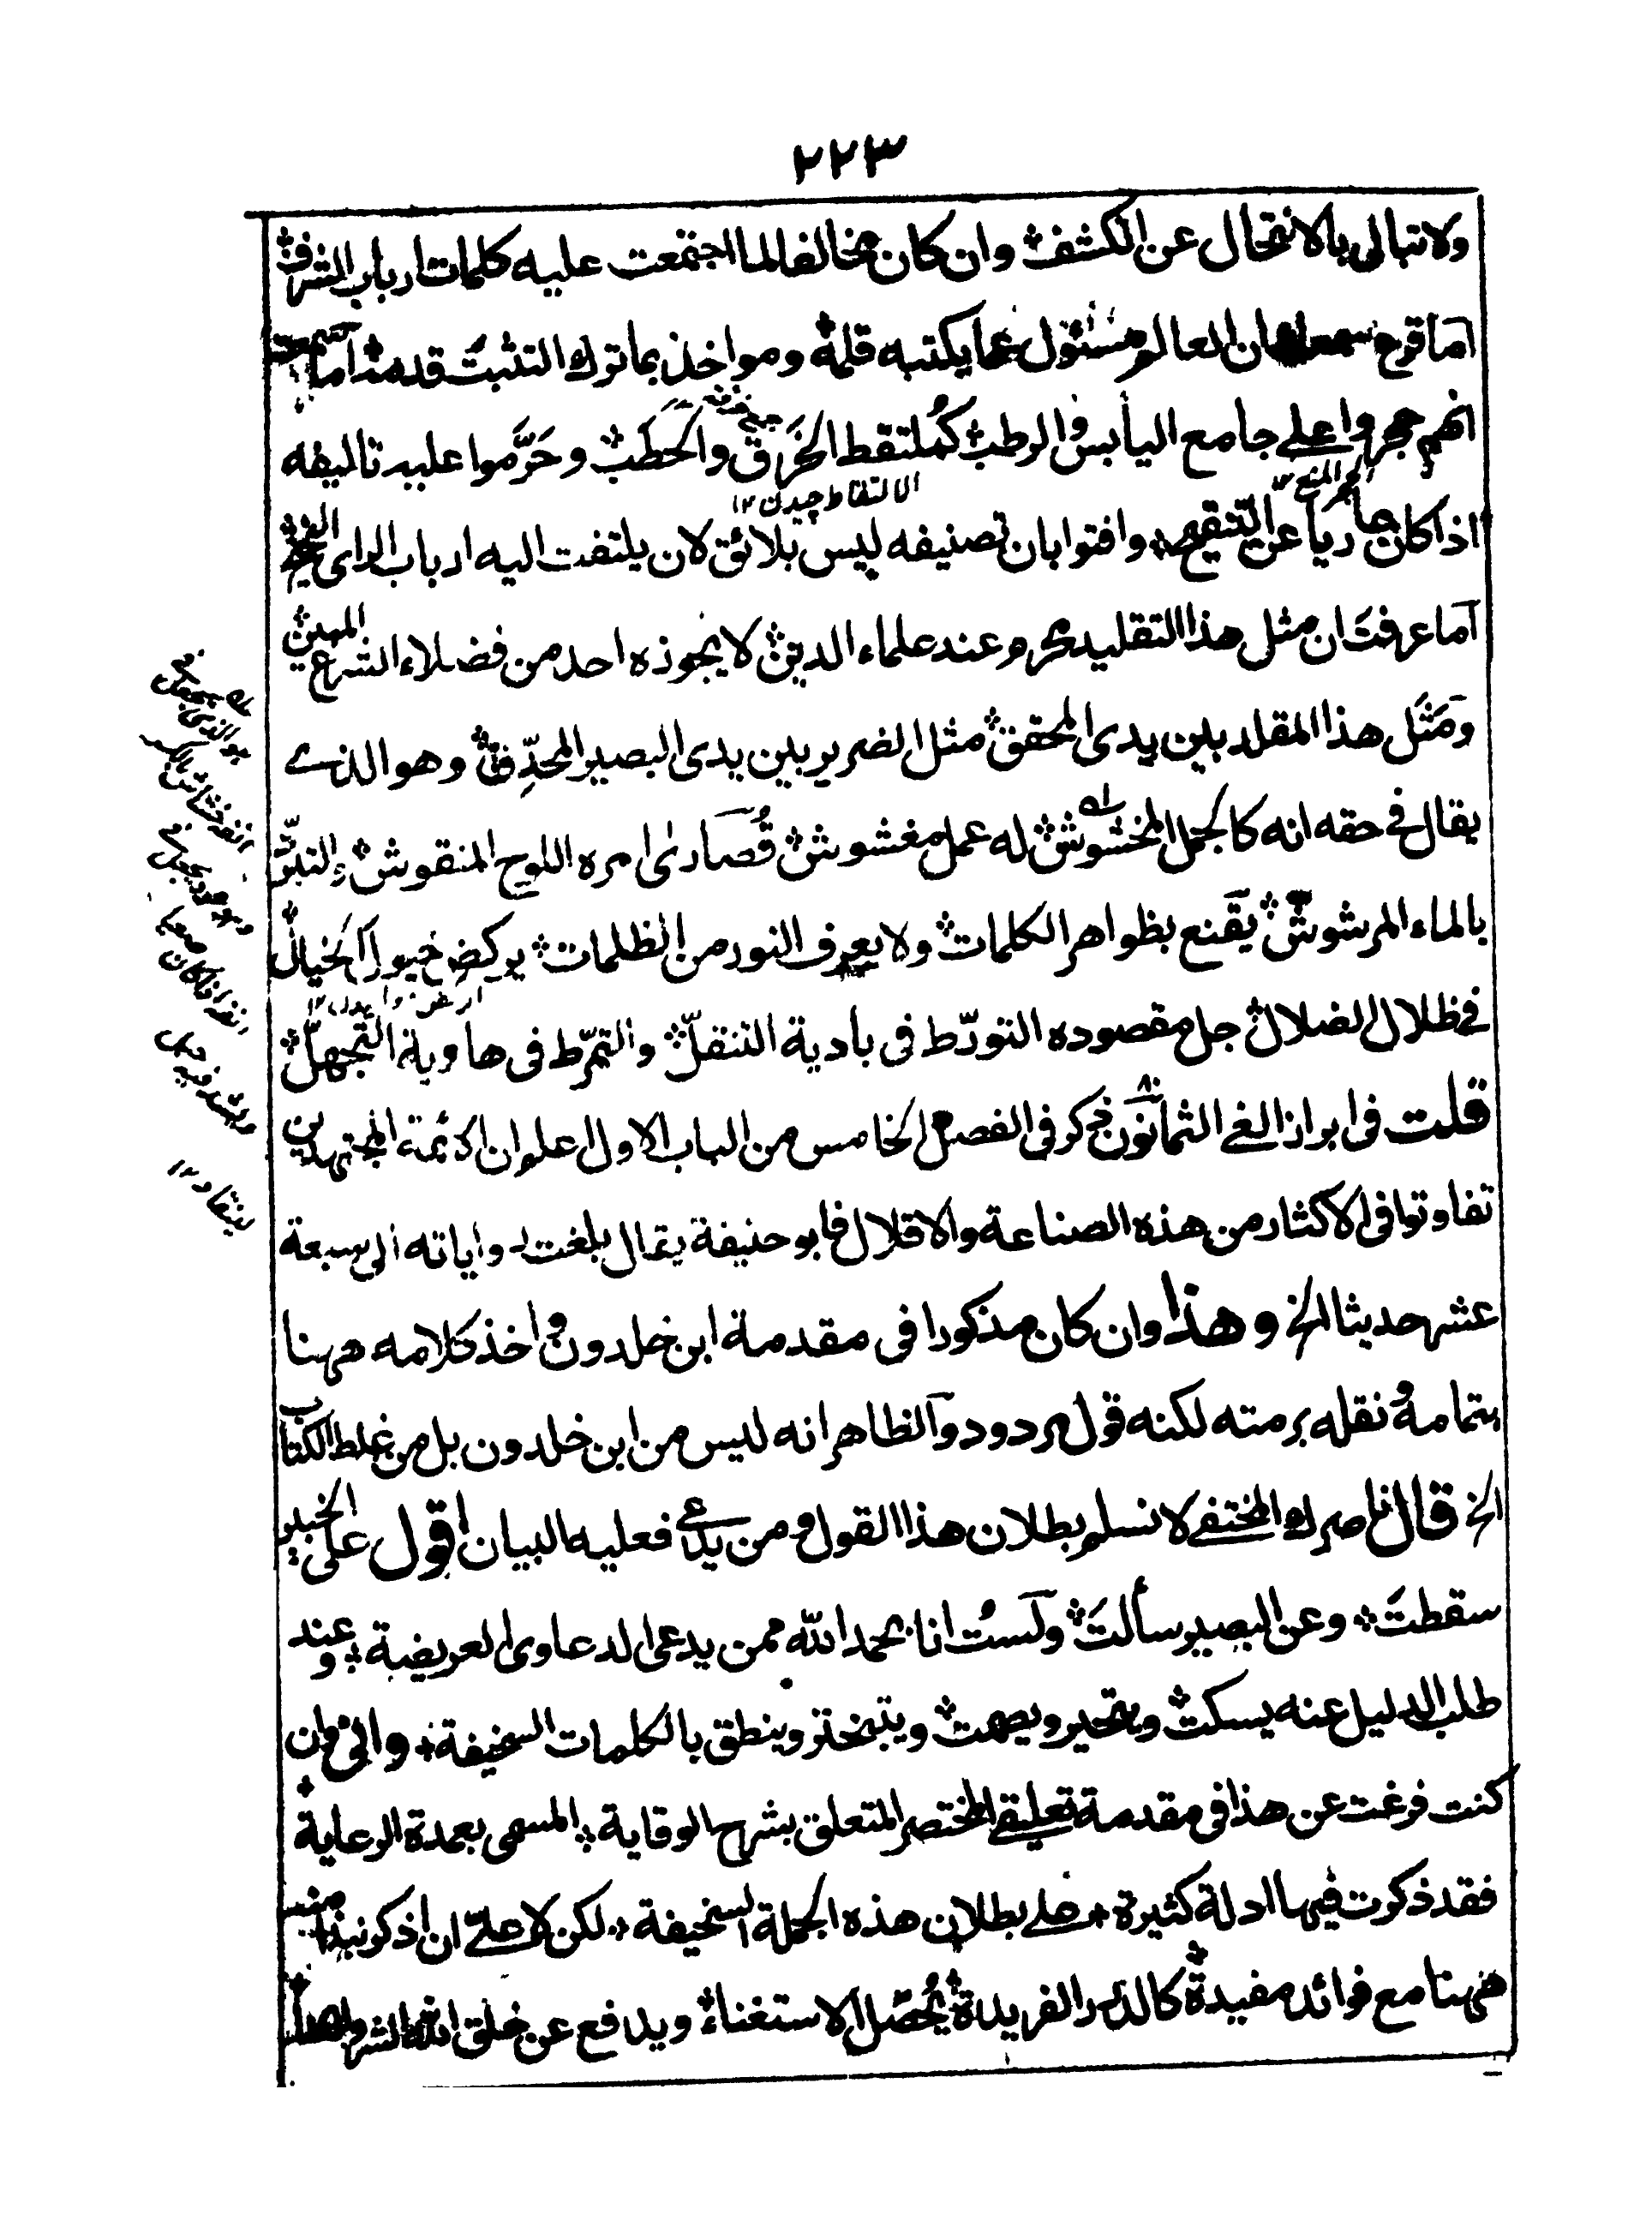 ٢٢٣
ولا تبالى بالانتحال عن الكشف وان كان مخالفا لما اجتمعت عليه كلمات ارباب الشرف
اما قرع سمعك ان العالم مسئول عما يكتبه قلمه ومواخذ بما ترك التثبت قدمه اما سمعت
انهم حجروا على جامع اليابس والرطب كملتقط الخرق والحطب وحَرَّموا عليه تاليفه
الحجر المنع ١٢
الالتقاط چیدن ١٢
اذا كان عاريا عن التنقيح وافتوا بان تصنيفه ليس بلائق لان يلتفت اليه ارباب الراى
اما عرفت ان مثل هذا التقليد محرم عند علماء الدين لا يجوزه احد من فضلاء الشرع المبين
ومَثَل هذا المقلد بين يدى المحقق مثل الضرير بين يدى البصير المحدِّق وهو الذے
يقال فى حقه انه كالجمل المخشوش له عمل مغشوش قُصارىٰ امره اللوح المنقوش والتبرُّ
بالماء المرشوش يقنع بظواهر الكلمات ولا يعرف النور من الظلمات يركض خيول الخيال
فى ظلال الضلال جل مقصوده التورّط فى بادية التنقلّ والتمرّط فى هاوية التجهلّ
قلت فى ابراز الغى الثمانون ذكر فى الفصل الخامس من الباب الاول اعلم ان الائمة المجتهدين
تفاوتوا فى الاكثار من هذه الصناعة والاقلال فابو حنيفة يقال بلغت رواياته الى سبعة
عشر حديثا الخ وهذا وان كان مذكورا فى مقدمة ابن خلدون واخذ كلامه ههنا
بتمامه ونقله برمته لكنه قول مردود والظاهر انه ليس من ابن خلدون بل من غلط الكتاب
الخ قال ناصرك المختفى لا نسلم بطلان هذا القول ومن يدعى فعليه البيان اقول على الخبير
سقطتَ وعن البصير سألتَ ولستُ انا بحمد الله ممن يدعى الدعاوى العريضة وعند
طلب الدليل عنه يسكت ويتحير ويصمت ويتبختر وينطق بالكلمات السخيفة وانى وان
كنت فرغت عن هذا فى مقدمة تعليقى المختصر المتعلق بشرح الوقاية المسمى بعمدة الرعاية
فقد ذكرت فيها ادلة كثيرة على بطلان هذه الجملة السخيفة لكن لا علىّ ان اذكر نبذا منها
ههنا مع فوائد مفيدة كالدرر الفريدة يُحصّل الاستغناء ويدفع عن خلق الله الشر